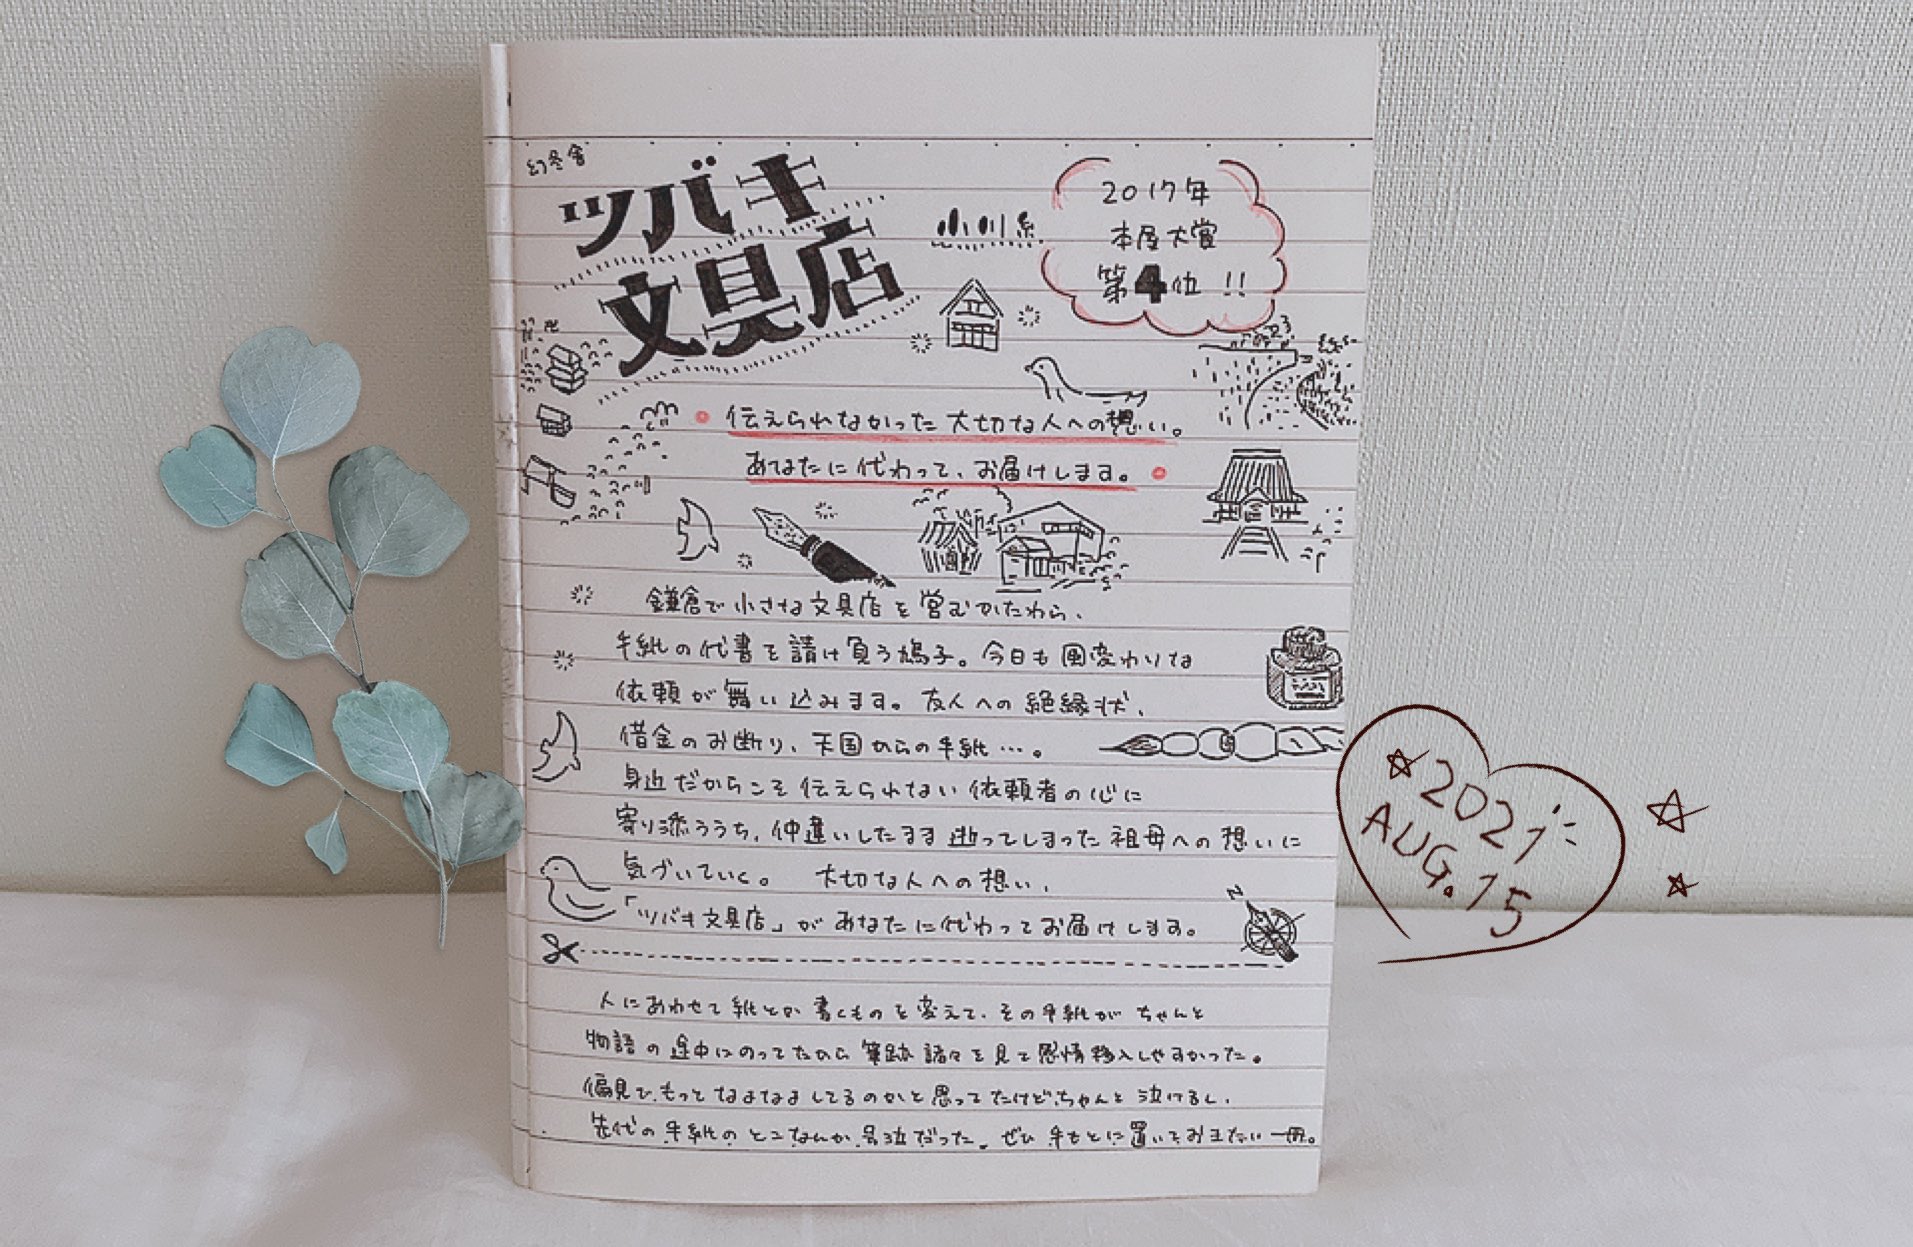 幻冬舎
ツバキ
文具店
小川糸
2017年
本屋大賞
第4位!!
伝えられなかった大切な人への想い。
あなたに代わって、お届けします。
鎌倉で小さな文具店を営むかたわら、
手紙の代書を請け負う鳩子。今日も風変わりな
依頼が舞い込みます。友人への絶縁状、
借金のお断り、天国からの手紙…。
身近だからこそ伝えられない依頼者の心に
寄り添ううち、仲違いしたまま逝ってしまった祖母への想いに
気づいていく。 大切な人への想い、
「ツバキ文具店」があなたに代わってお届けします。
N
人にあわせて紙とか書くものを変えて、その手紙がちゃんと
物語の途中にのってたから筆跡諸々を見て感情移入しやすかった。
偏見で、もっとなよなよしてるのかと思ってたけど、ちゃんと泣けるし、
先代の手紙のとこなんか号泣だった。ぜひ手もとに置いておきたい一冊。
2021
AUG.15